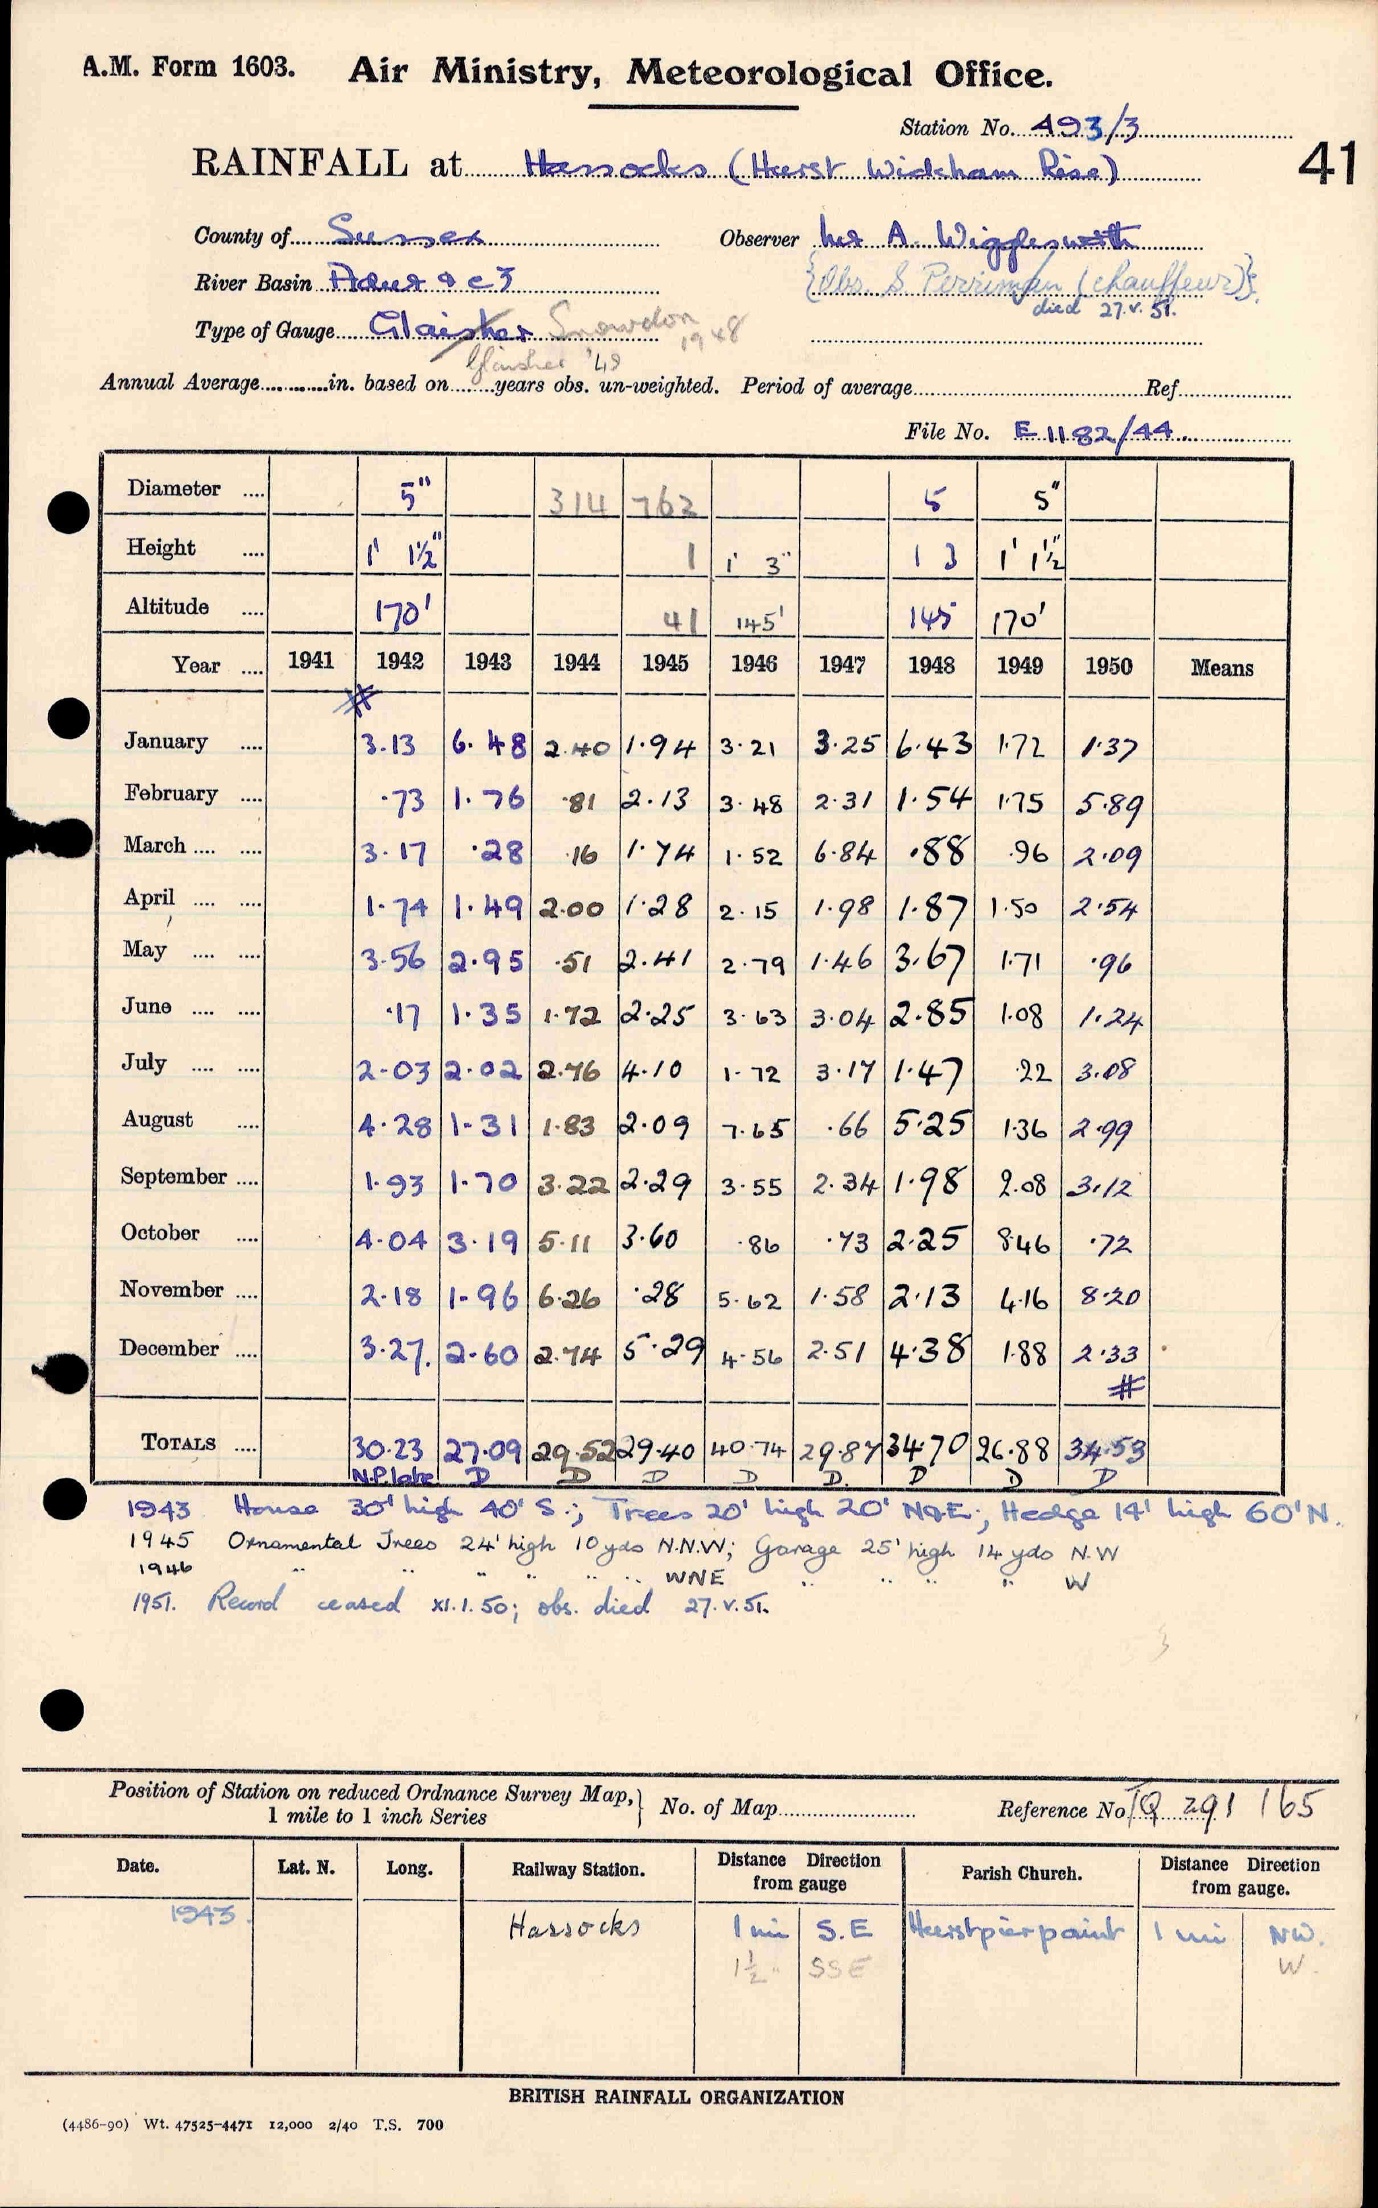 A.M. Form 1603. Air Ministry, Meteorological Office.
Station No. 493/3
RAINFALL at Hassocks (Hurst Wickham Rise)
41
County of Sussex Observer Mrs A. Wigglesworth
River Basin Adur & c3 {Obs. S. Perriman (chauffeur)}
died 27.v.51.
Type of Gauge Glaisher Snowdon 1948
Glaisher '49
Annual Average in. based on years obs. un-weighted. Period of average Ref
File No. E 1182/44
Diameter 5" 314 762 5 5"
Height 1' 1½" 1 1' 3" 1 3 1' 1½"
Altitude 170' 41 145' 145 170'
Year 1941 1942 1943 1944 1945 1946 1947 1948 1949 1950 Means
#
January 3.13 6.48 2.40 1.94 3.21 3.25 6.43 1.72 1.37
February .73 1.76 .81 2.13 3.48 2.31 1.54 1.75 5.89
March .... 3.17 .28 .16 1.74 1.52 6.84 .88 .96 2.09
April .... 1.74 1.49 2.00 1.28 2.15 1.98 1.87 1.50 2.54
May .... 3.56 2.95 .51 2.41 2.79 1.46 3.67 1.71 .96
June .... .17 1.35 1.72 2.25 3.63 3.04 2.85 1.08 1.24
July .... 2.03 2.02 2.76 4.10 1.72 3.17 1.47 .22 3.08
August 4.28 1.31 1.83 2.09 7.65 .66 5.25 1.36 2.99
September 1.93 1.70 3.22 2.29 3.55 2.34 1.98 2.08 3.12
October 4.04 3.19 5.11 3.60 .86 .73 2.25 8.46 .72
November 2.18 1.96 6.26 .28 5.62 1.58 2.13 4.16 8.20
December 3.27. 2.60 2.74 5.29 4.56 2.51 4.38 1.88 2.33
#
TOTALS 30.23 27.09 29.52 29.40 40.74 29.87 34.70 26.88 34.53
N.P. late D D D D D. D D D
1943 House 30' high 40' S.; Trees 20' high 20' N&E.; Hedge 14' high 60' N.
1945 Ornamental Trees 24' high 10 yds N.N.W; Garage 25' high 14 yds N.W
1946 " " " " " " WNE " " " " W
1951. Record ceased XI.1.50; obs. died 27.v.51.
Position of Station on reduced Ordnance Survey Map,} No. of Map Reference No. TQ 291 165
1 mile to 1 inch Series
Date. Lat. N. Long. Railway Station. Distance Direction from gauge Parish Church. Distance Direction from gauge.
1943. Hassocks 1 mi S.E Hurstpierpoint 1 mi NW.
1½ " SSE W.
BRITISH RAINFALL ORGANIZATION
(4486-90) Wt. 47525-4471 12,000 2/40 T.S. 700